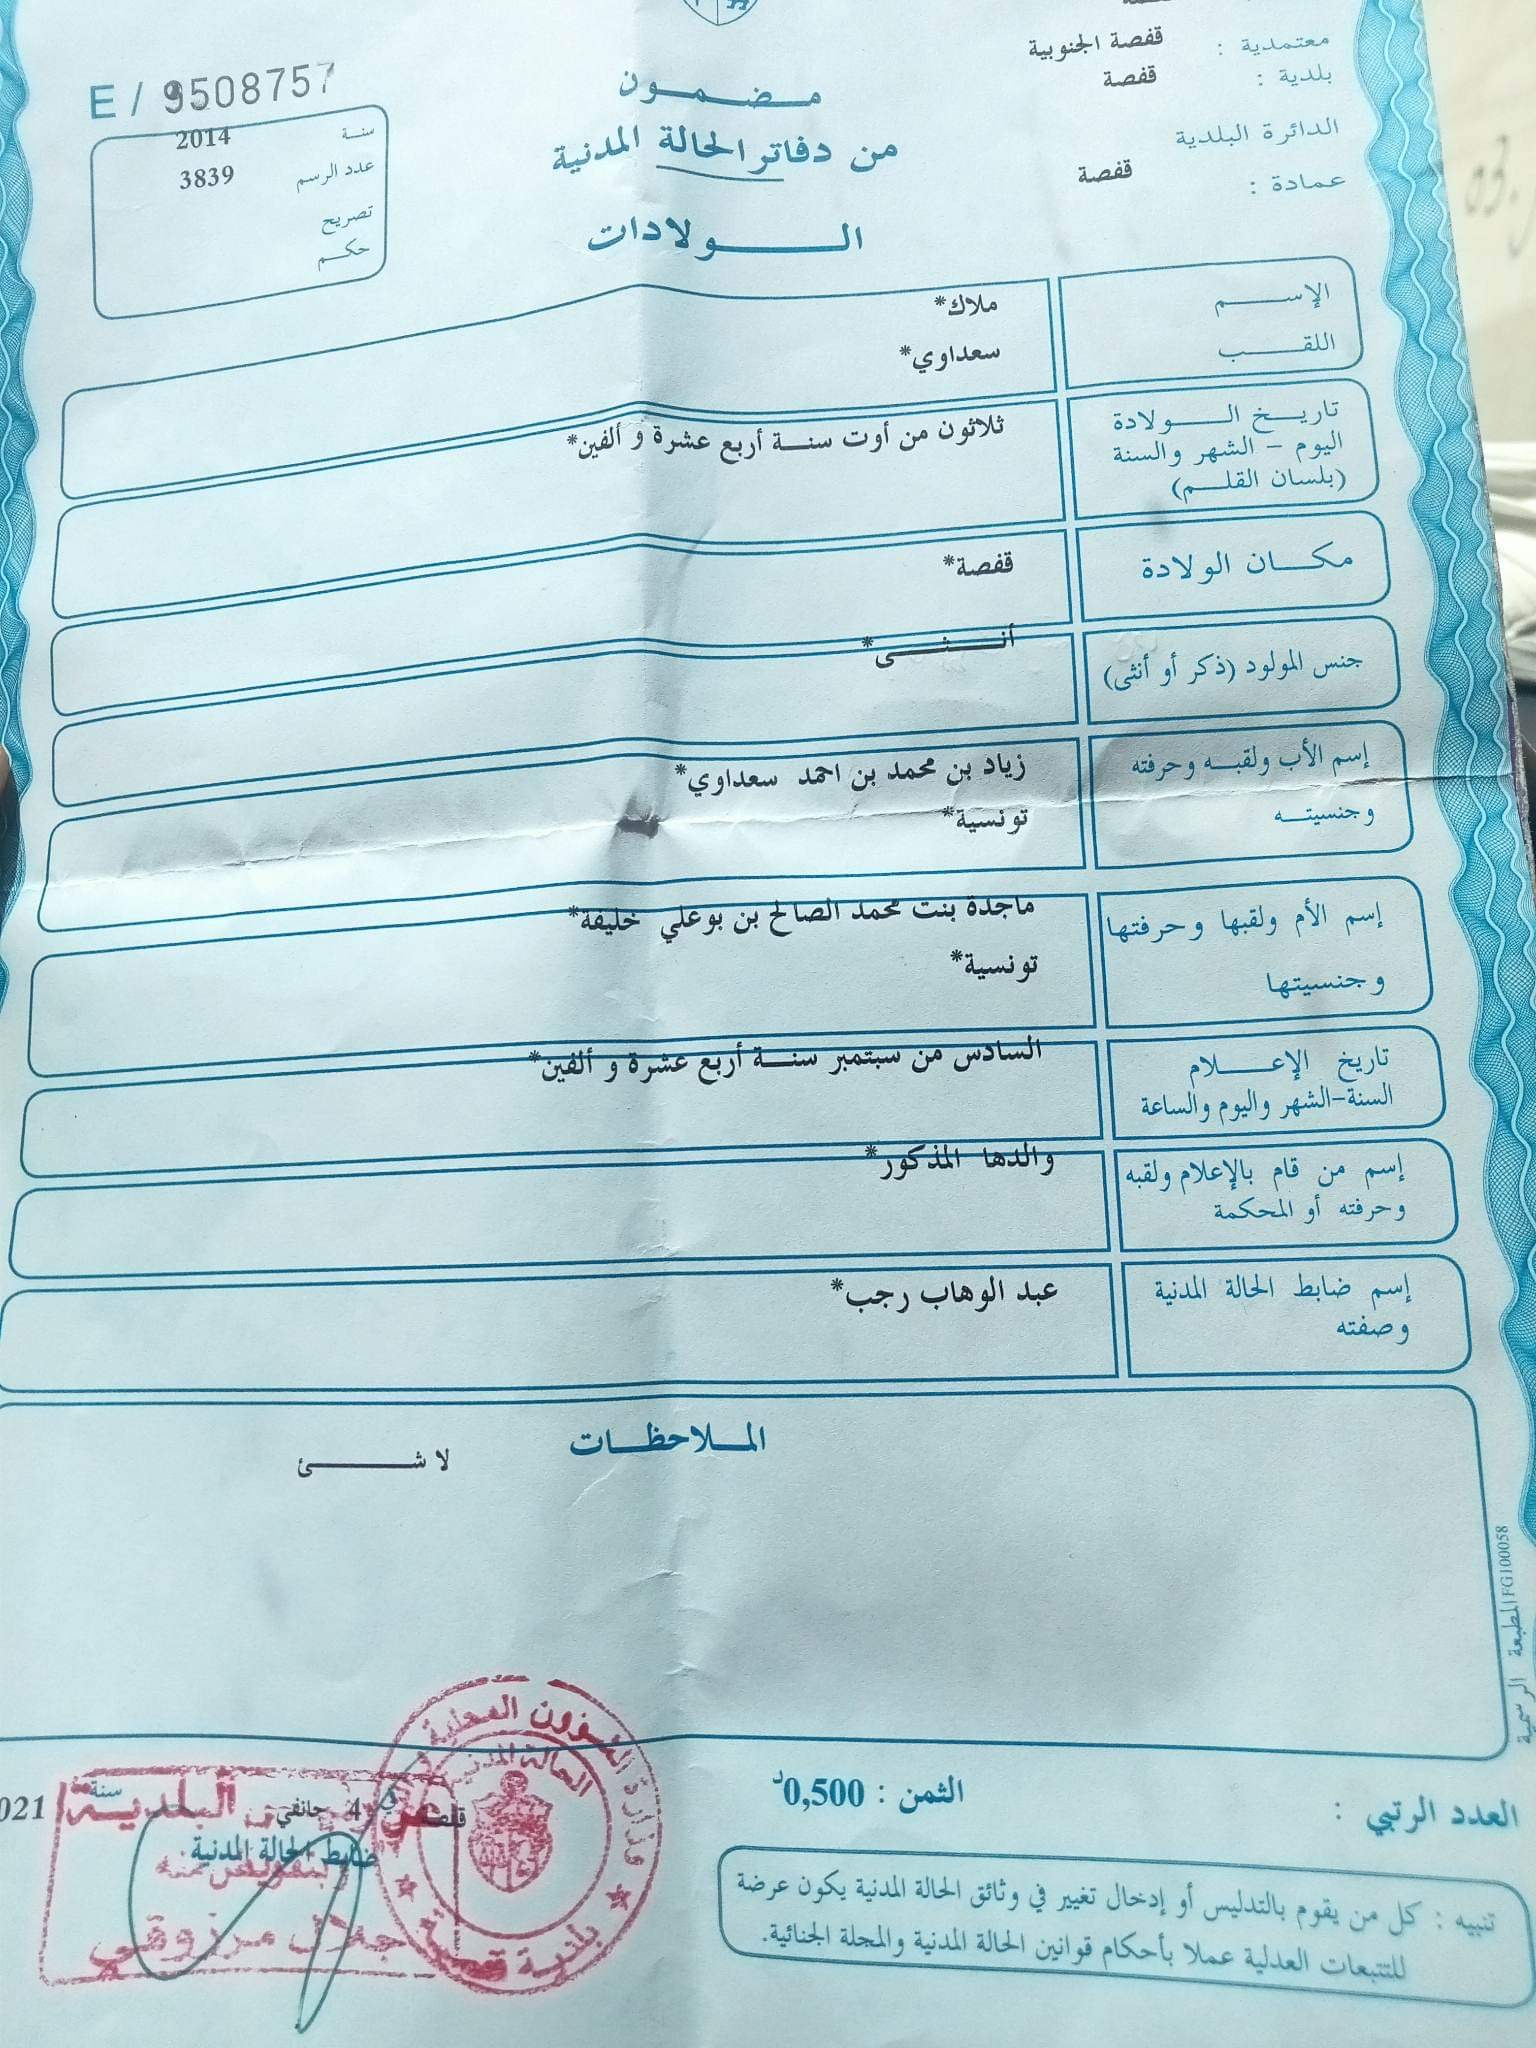 معتمدية : قفصة الجنوبية
بلدية : قفصة
الدائرة البلدية
عمادة : قفصة
E / 9508757
سنة 2014
عدد الرسم 3839
تصريح
حكم
مضمون
من دفاتر الحالة المدنية
الولادات
الإسم ملاك*
اللقب سعداوي*
تاريخ الولادة
اليوم – الشهر والسنة
(بلسان القلم)
ثلاثون من أوت سنة أربع عشرة و ألفين*
مكان الولادة قفصة*
جنس المولود (ذكر أو أنثى) أنثى*
إسم الأب ولقبه وحرفته زياد بن محمد بن احمد سعداوي*
وجنسيته تونسية*
إسم الأم ولقبها وحرفتها ماجدة بنت محمد الصالح بن بوعلي خليفة*
وجنسيتها تونسية*
تاريخ الإعلام السادس من سبتمبر سنة أربع عشرة و ألفين*
السنة-الشهر واليوم والساعة
إسم من قام بالإعلام ولقبه والدها المذكور*
وحرفته أو المحكمة
إسم ضابط الحالة المدنية عبد الوهاب رجب*
وصفته
الملاحظات
لا شئ
المطبعة الرسمية FG100058
العدد الرتبي :
الثمن : 0,500د
4 جانفي سنة 021
ضابط الحالة المدنية
البلدية
جلال مرزوقي
وزارة الشؤون المحلية
الحالة المدنية
بلدية قفصة
تنبيه : كل من يقوم بالتدليس أو إدخال تغيير في وثائق الحالة المدنية يكون عرضة
للتتبعات العدلية عملا بأحكام قوانين الحالة المدنية والمجلة الجنائية.